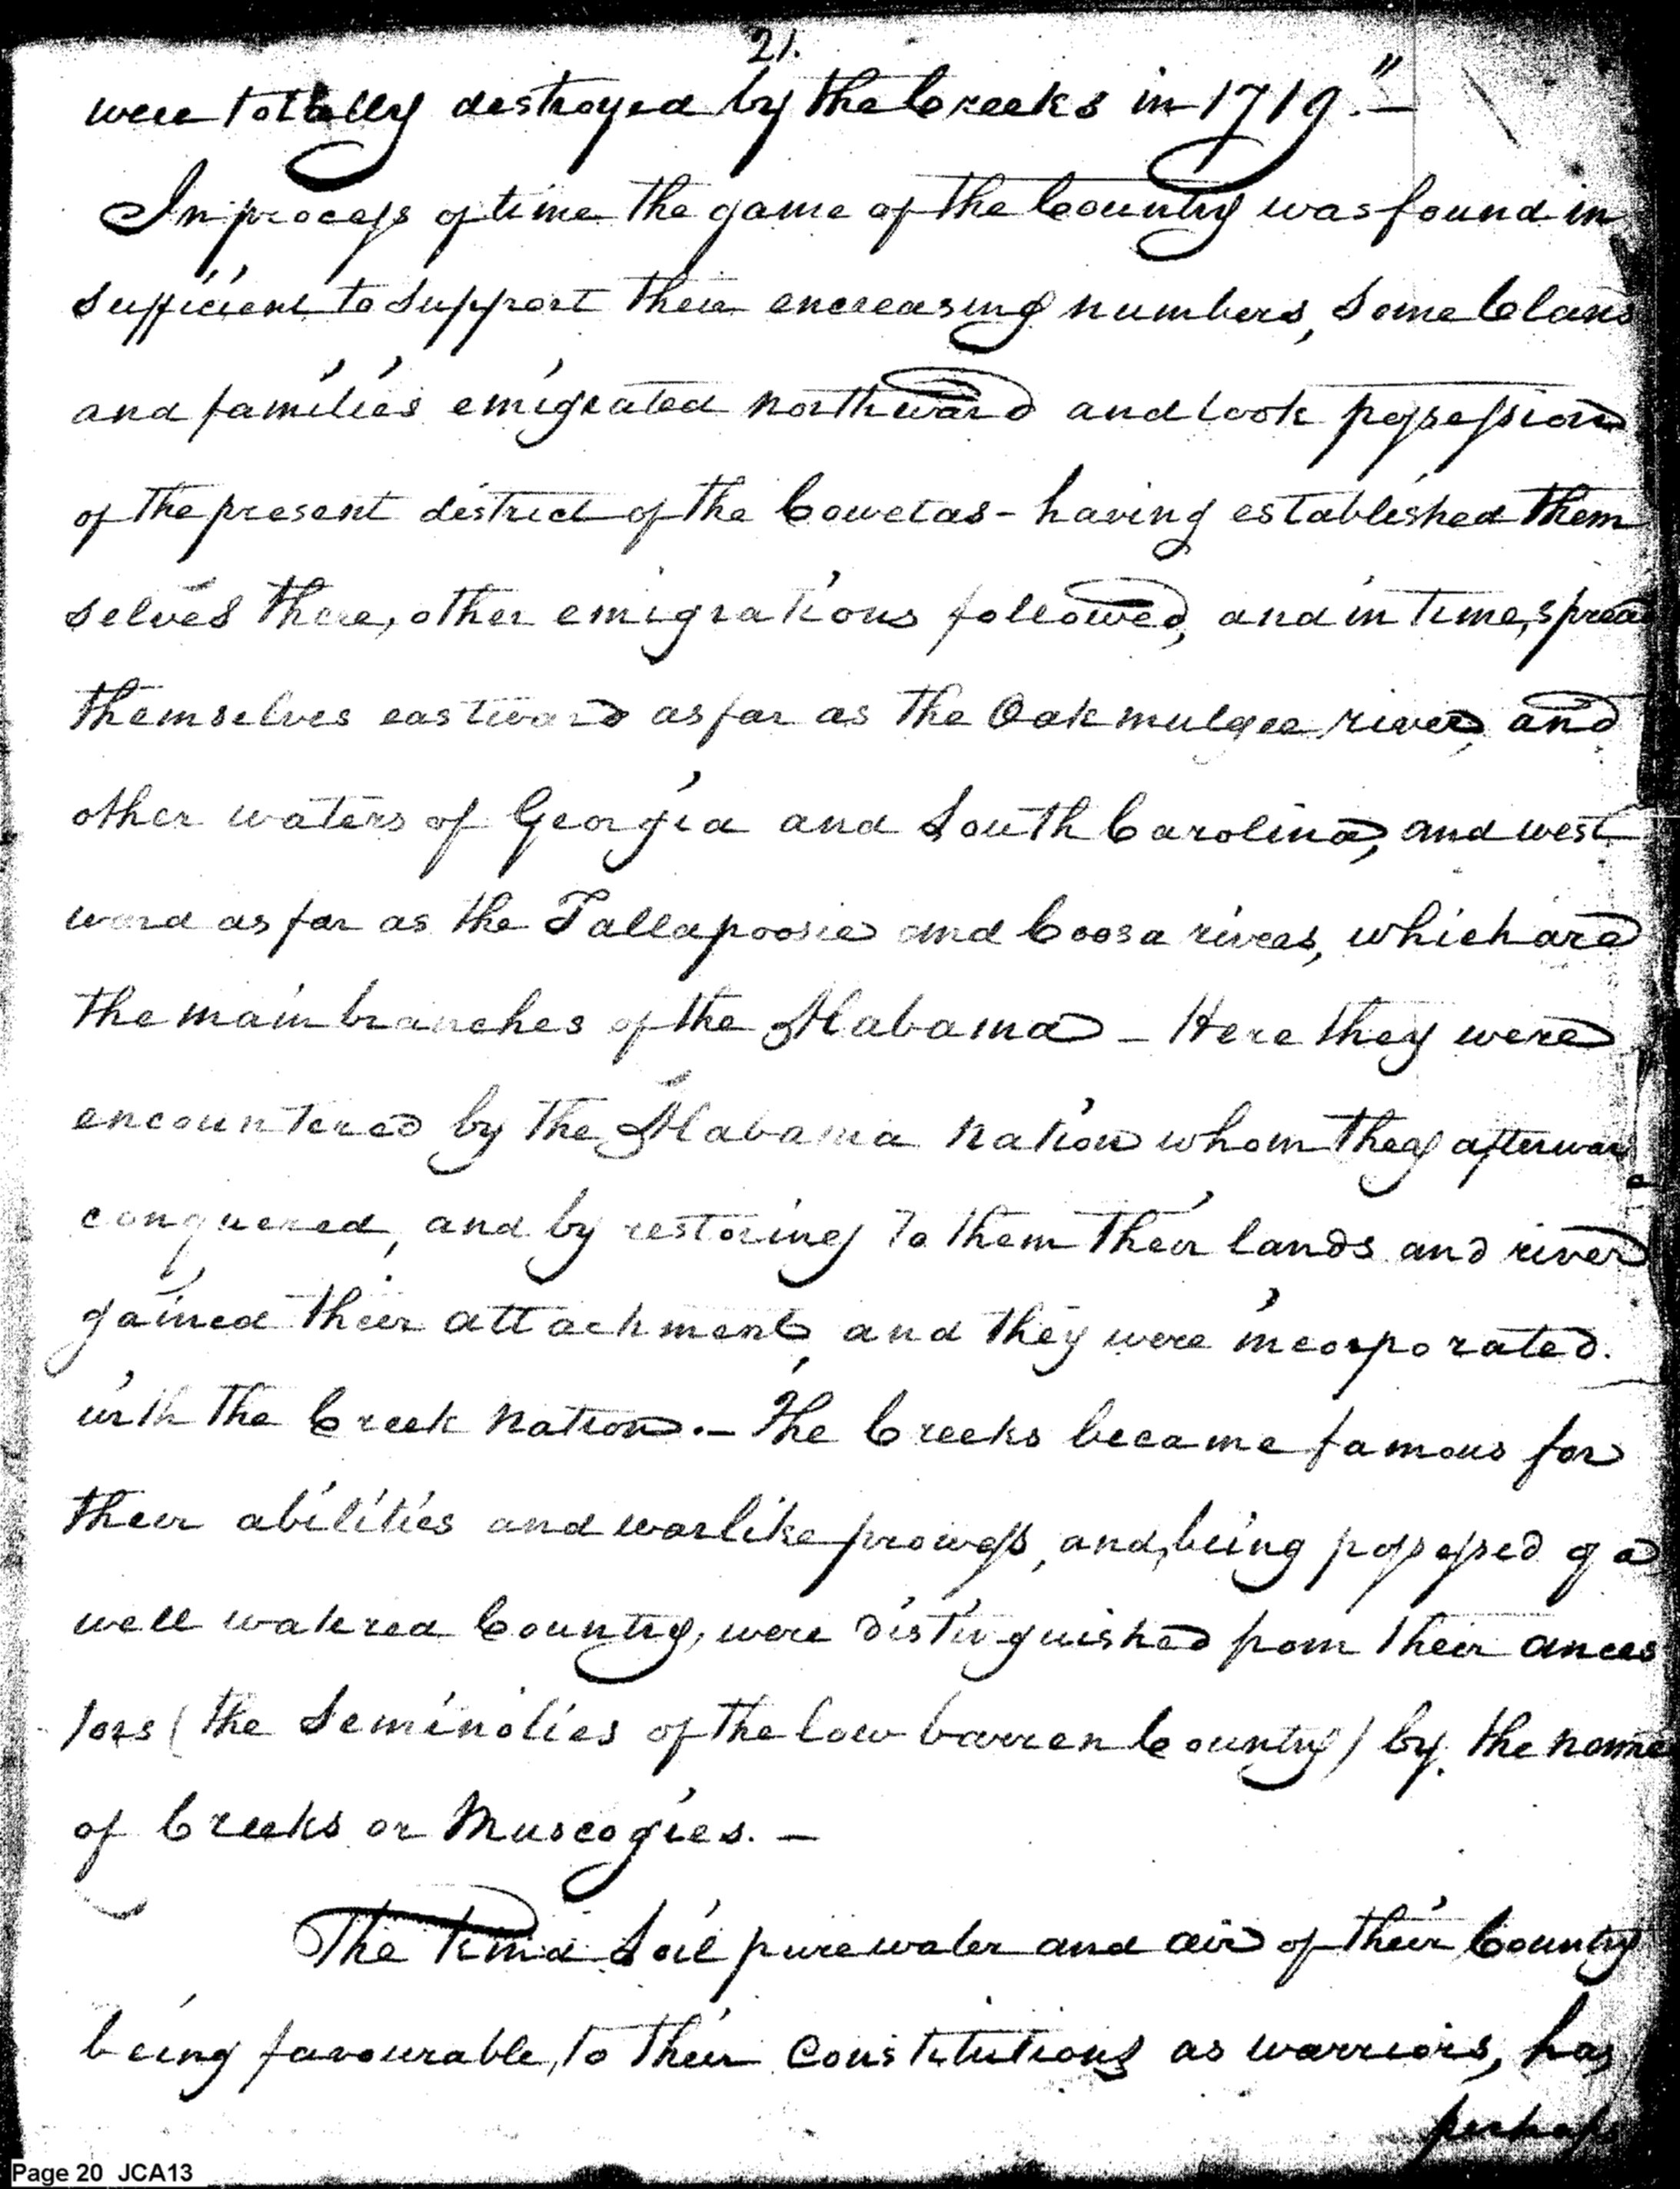 21.
were totally destroyed by the Creeks in 1719."—
In process of time the game of the Country was found in
sufficient to support their encreasing numbers, some Clans
and families emigrated northward and took possession
of the present district of the Cowetas - having established them
selves there, other emigrations followed, and in time, spread
themselves eastward as far as the Oakmulgee river, and
other waters of Georgia and South Carolina, and west
ward as far as the Tallapoosie and Coosa rivers, which are
the main branches of the Alabama — Here they were
encountered by the Alabama nation whom they afterwar
conquered, and by restoring to them their lands and river
gained their attachment, and they were incorporated.
with the Creek nation. — The Creeks became famous for
their abilities and warlike prowess, and, being possessed of a
well watered Country, were distinguished from their ances
tors (the Seminolies of the low barren Country) by. the name
of Creeks or Muscogies. —
The kind Soil pure water and air of their Country
being favourable, to their Constitutions as warriors, has
perhaps
Page 20 JCA13